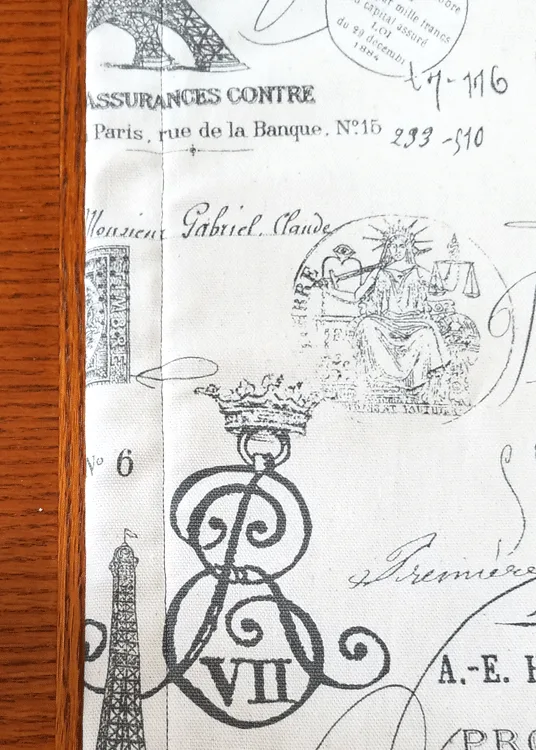 mille francs
capital assuré
du 29 décemb
1884
17-116
ASSURANCES CONTRE
Paris, rue de la Banque, Nº15
293-510
Monsieur Gabriel, Claude
TIMBRE
Nº 6
VII
Première
A.-E.
PRO